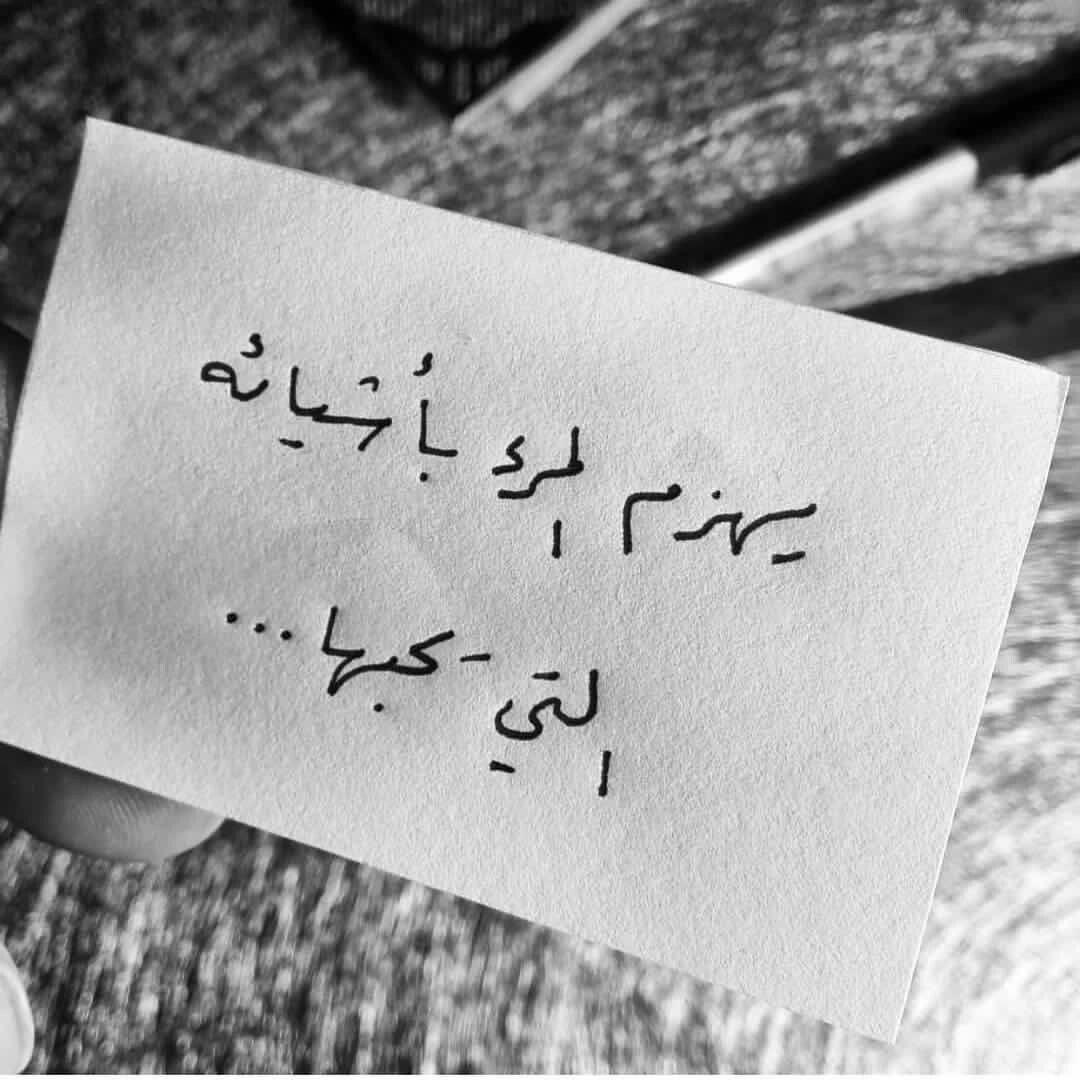 يهزم المرء بأشيائه
التي يحبها...